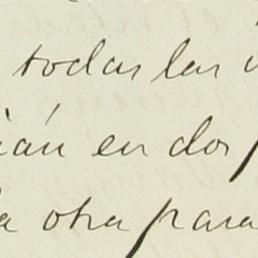 todas las
ián en dos
a otra para